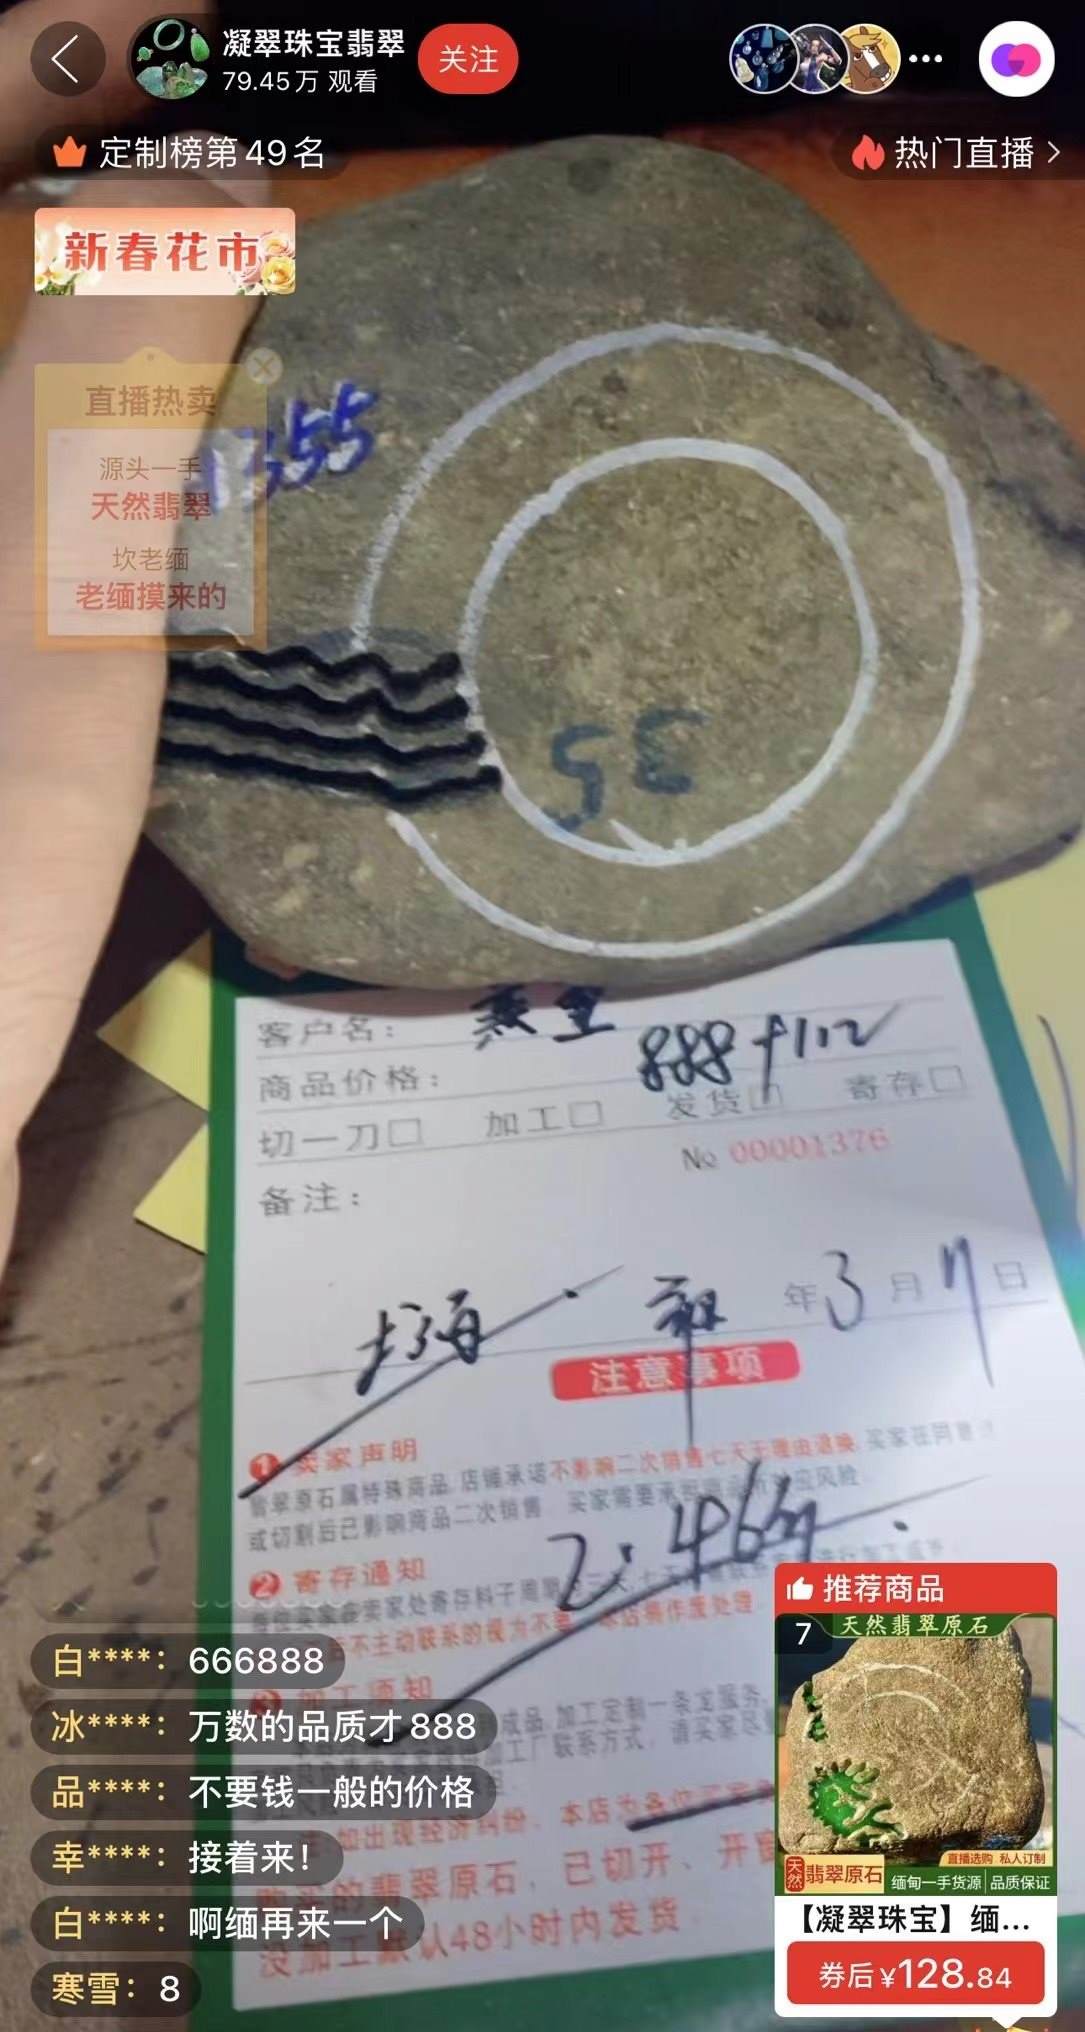 凝翠珠宝翡翠
79.45万 观看
关注
定制榜第49名
热门直播
新春花市
直播热卖
源头一手
天然翡翠
坎老缅
老缅摸来的
1355
35
客户名:
商品价格:
888+112
切一刀 加工 发货 寄存
№ 00001376
备注:
上海
年3月17日
注意事项
1 卖家声明
翡翠原石属特殊商品,店铺承诺不影响二次销售七天无理由退换,买家在同意
或切割后已影响商品二次销售,买家需要承担
风险
2 寄存通知
2.46
不主动联系的视为不要,本店将作废处理
3 加工须知
成品,加工定制一条龙服务,
加工厂联系方式,
如出现经济纠纷,本店为各位
的翡翠原石,已切开、开窗
没加工默认48小时内发货
白****:666888
冰****:万数的品质才888
品****:不要钱一般的价格
幸****:接着来!
白****:啊缅再来一个
寒雪:8
推荐商品
7
天然翡翠原石
直播选购 私人订制
天然翡翠原石
缅甸一手货源 品质保证
【凝翠珠宝】缅...
券后¥128.84